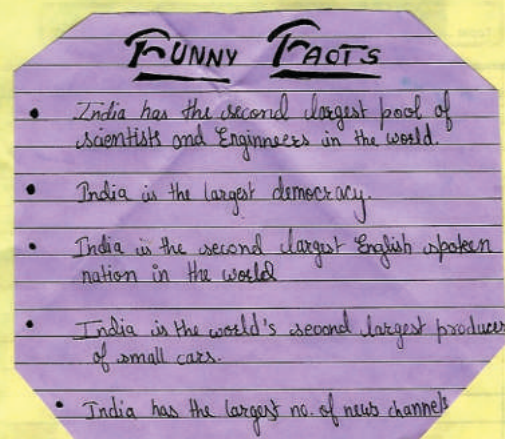 FUNNY FACTS
• India has the second largest pool of
scientists and Enginneers in the world.
• India is the largest democracy.
• India is the second largest English spoken
nation in the world
• India is the world's second largest producer
of small cars.
• India has the largest no. of news channels